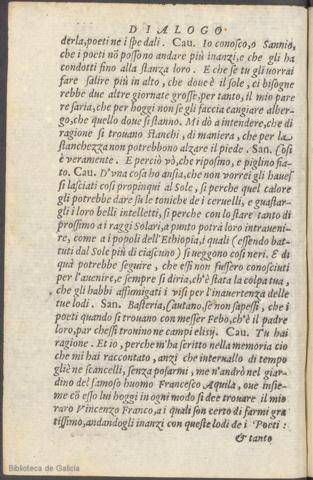 DIALOGO
derla, poeti ne i spedali. Cau. Io conosco, o Sannio,
che i poeti nõ possono andare più inanzi, e che gli ha
condotti fino alla stanza loro. E che se tu gli uorrai
fare salire più in alto, che doue è il sole, ci bisogne
rebbe due altre giornate grosse, per tanto, il mio pare
re saria, che per hoggi non se gli faccia cangiare alber-
go, che quello doue si stanno. Mi dò a intendere, che di
ragione si trouano stanchi, di maniera, che per la
stanchezza non potrebbono alzare il piede. San. Cosi
è veramente. E perciò vò, che riposino, e piglino fia-
to. Cau. D'vna cosa ho ansia, che non vorrei gli hauess
si lasciati cosi propinqui al Sole, si perche quel calore
gli potrebbe dare sù le toniche de i ceruelli, e guastar-
gli i loro belli intelletti, si perche con lo stare tanto di
prossimo a i raggi Solari, a punto potrà loro intraueni-
re, come a i popoli dell'Ethiopia, i quali (essendo bat-
tuti dal Sole più di ciascuno) si ueggono cosi neri. E di
quà potrebbe seguire, che essi non fussero conosciuti
per l'auenire, e sempre si diria, ch'è stata la colpa tua,
che gli habbi affumigati i visi per l'inauertenza delle
tue lodi. San. Basteria, Cautano, se non sapessi, che i
poeti quando si trouano con messer Febo, ch'è il padre
loro, par chessi trouino ne campi elisij. Cau. Tu hai
ragione. Et io, perche m'ha scritto nella memoria cio
che mi hai raccontato, anzi che interuallo di tempo
gliè ne scancelli, senza posarmi, me n'andrò nel giar-
dino del famoso huomo Francesco Aquila, oue insie-
me cõ esso lui hoggi in ogni modo si dee trouare il mio
raro Vincenzo Franco, a i quali son certo di farmi gra
tissimo, andandogli inanzi con queste lodi de i Poeti:
& tanto
Biblioteca de Galicia